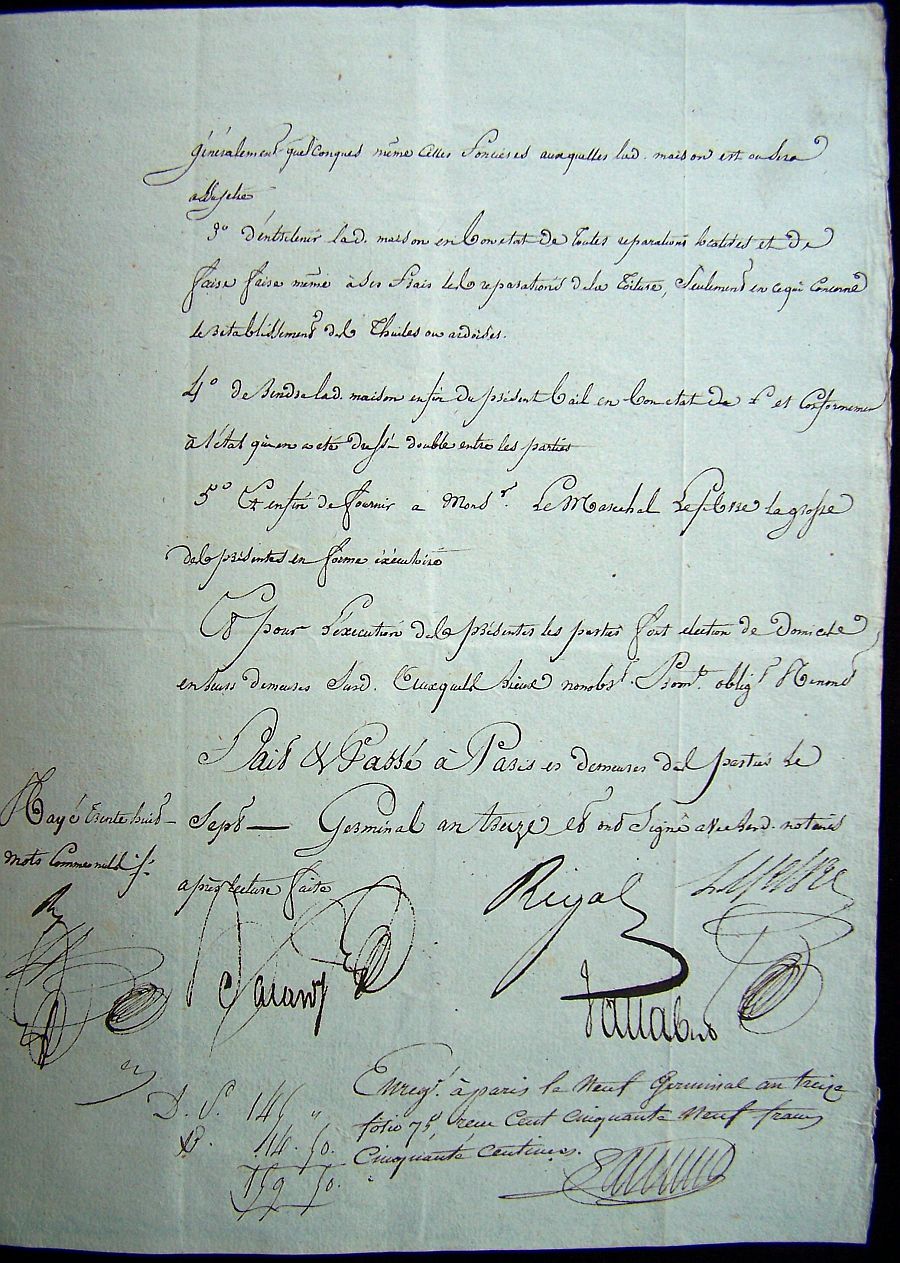 généralement quelconques même celles foncières auxquelles lad. maison est ou sera
assujetie
3º d'entretenir lad. maison en bon état de toutes reparations locatives et de
faire faire même à ses frais les reparations de la Toiture, seulement en ce qui concerne
le retablissement des Thuiles ou ardoises.
4º de Rendre lad. maison enfin du présent bail en bon état de et conformement
à l'état qui en a été dressé double entre les parties
5º Et enfin de fournir à Monsr. Le Marechal Lefebvre la grosse
des présentes en forme éxécutoire
Et pour l'éxecution des présentes les parties font election de domicile
en leurs demeures susd. Auxquels lieux nonobst. Promt. obligt. Renonct
Fait & Passé à Paris es demeures des parties Le
Sept Germinal an treize et ont signé avec lesd. notaires
après lecture faite
Rayé trente huit
mots comme nuls
Rigal
Lefebvre
Enregt. à paris le Neuf Germinal an treize
folio 75, reçu Cent Cinquante Neuf francs
Cinquante Centimes.
D. P. 145 "
14. 50.
159 50.